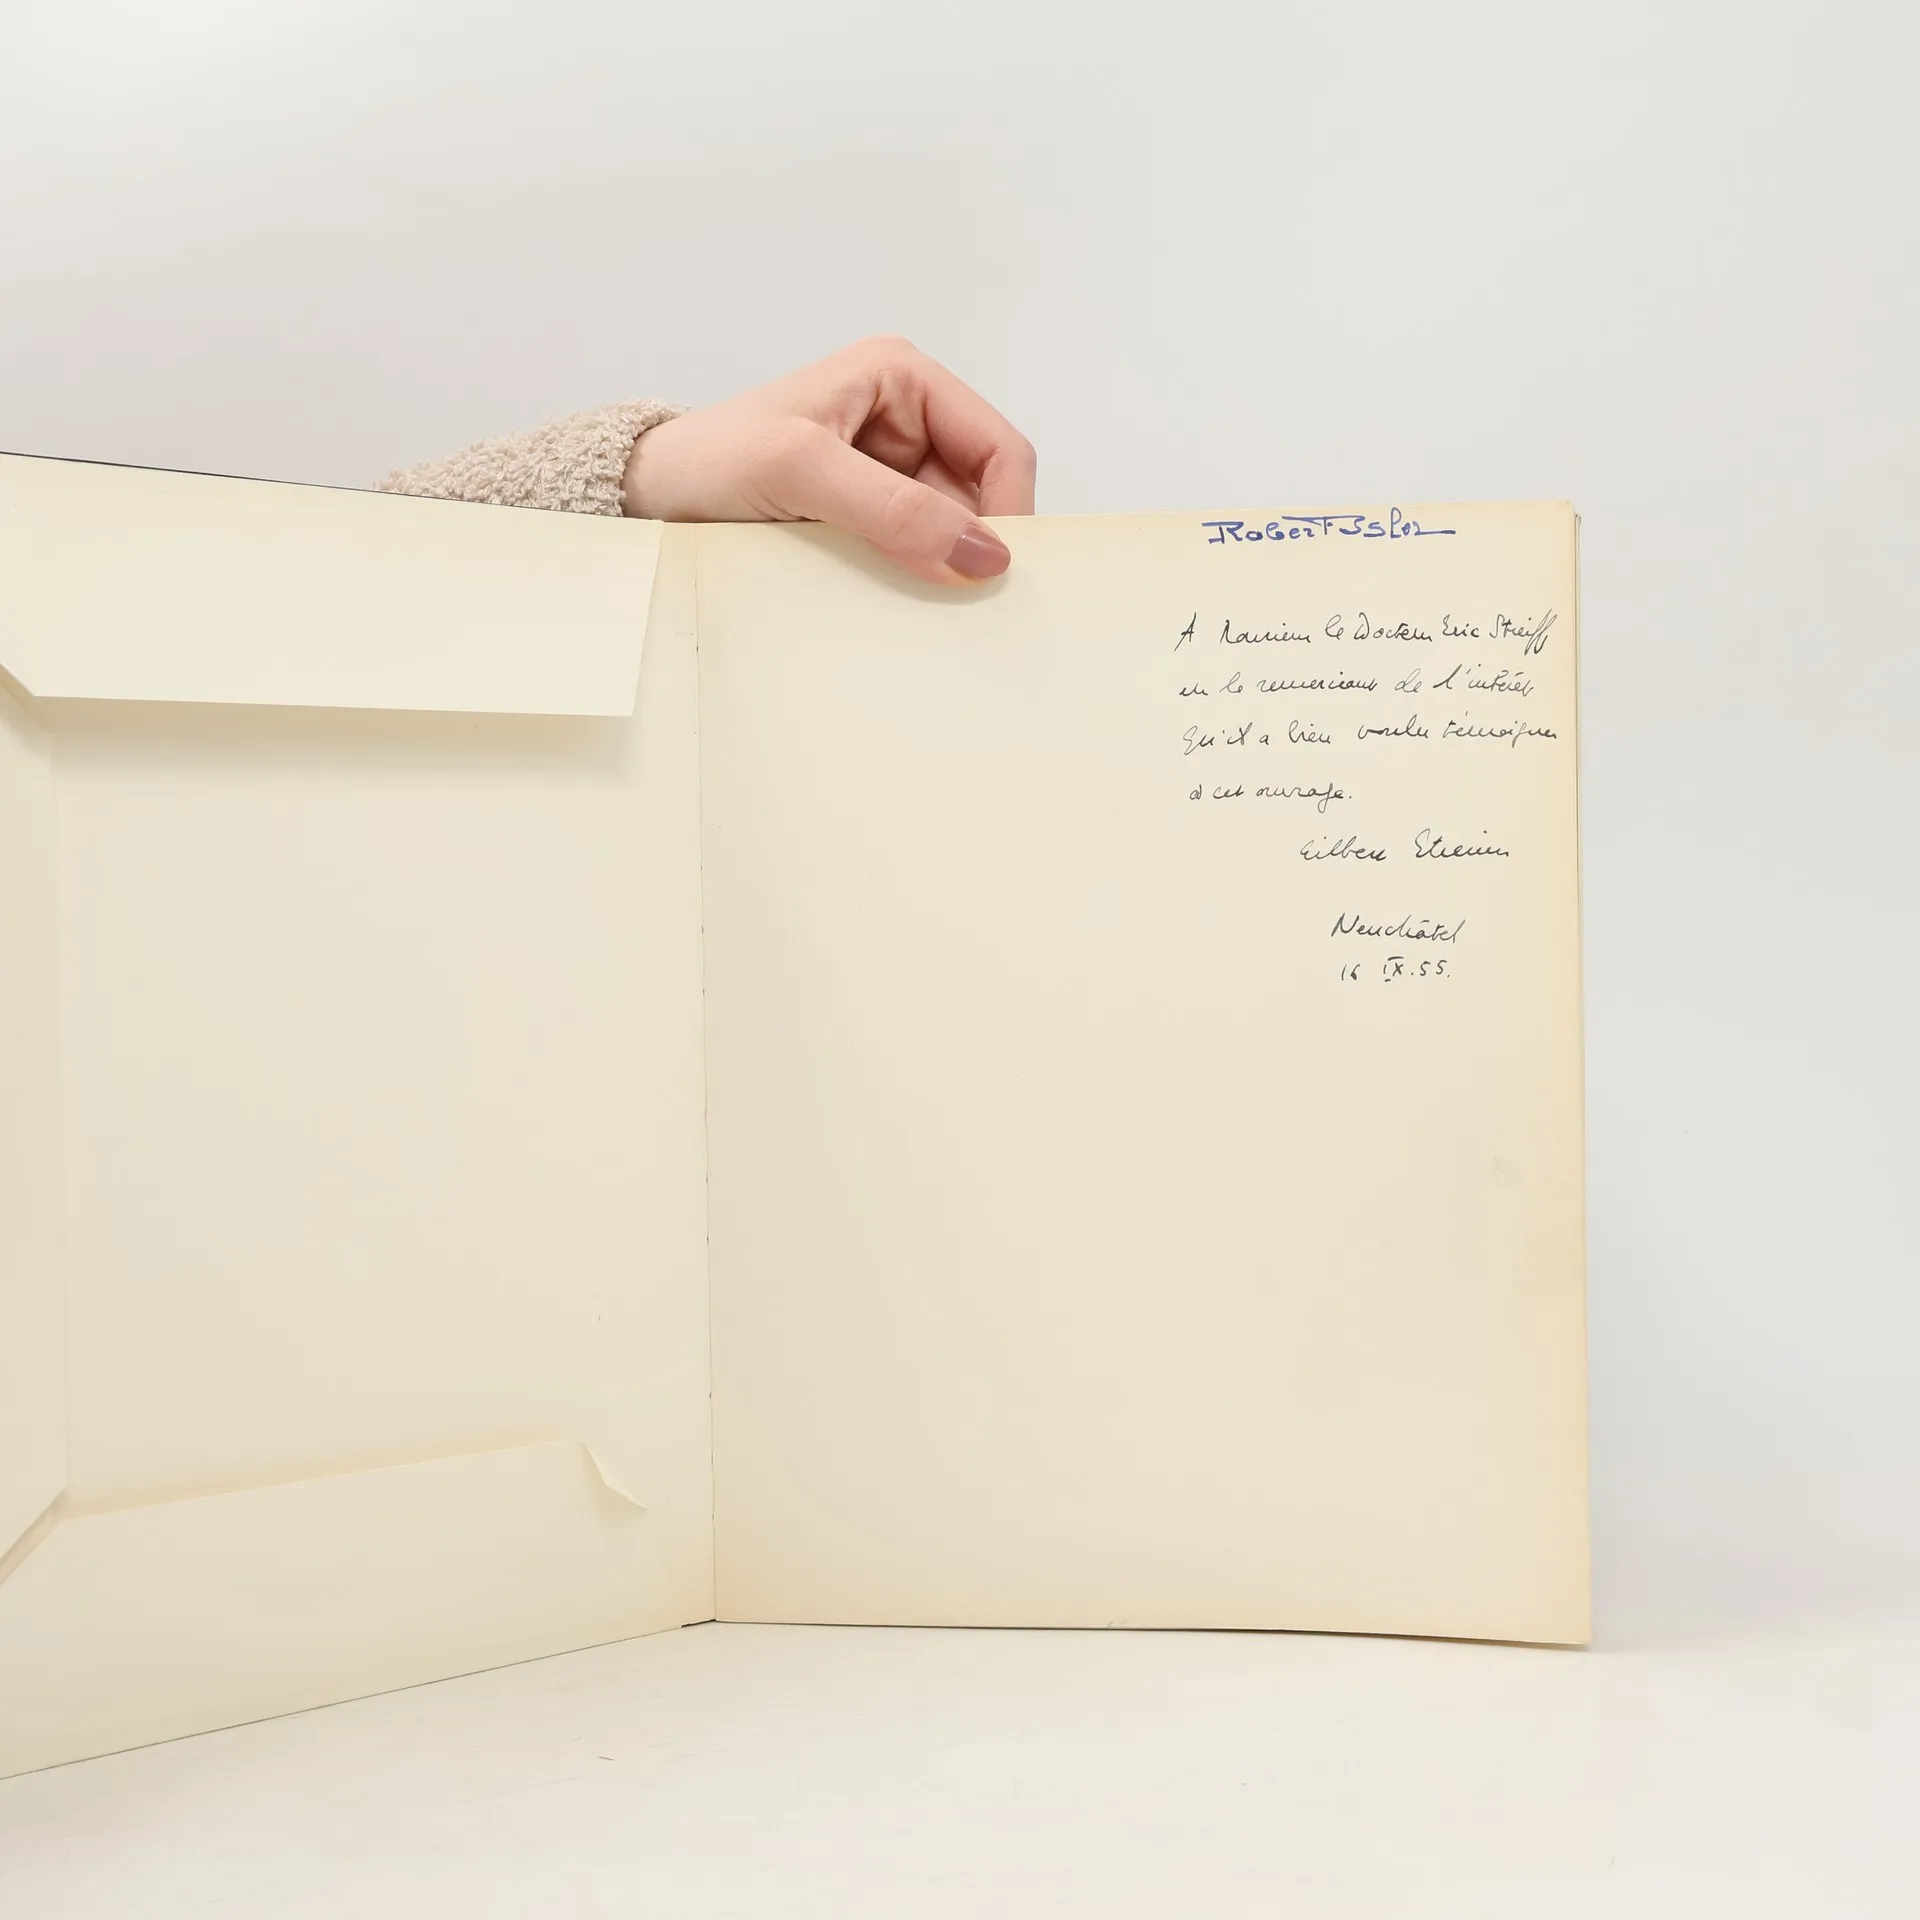 Robert Isler
A Monsieur le Docteur Eric Streiff
en le remerciant de l'intérêt
qu'il a bien voulu témoigner
à cet ouvrage.
Gilbert Etienne
Neuchâtel
16 IX.55.